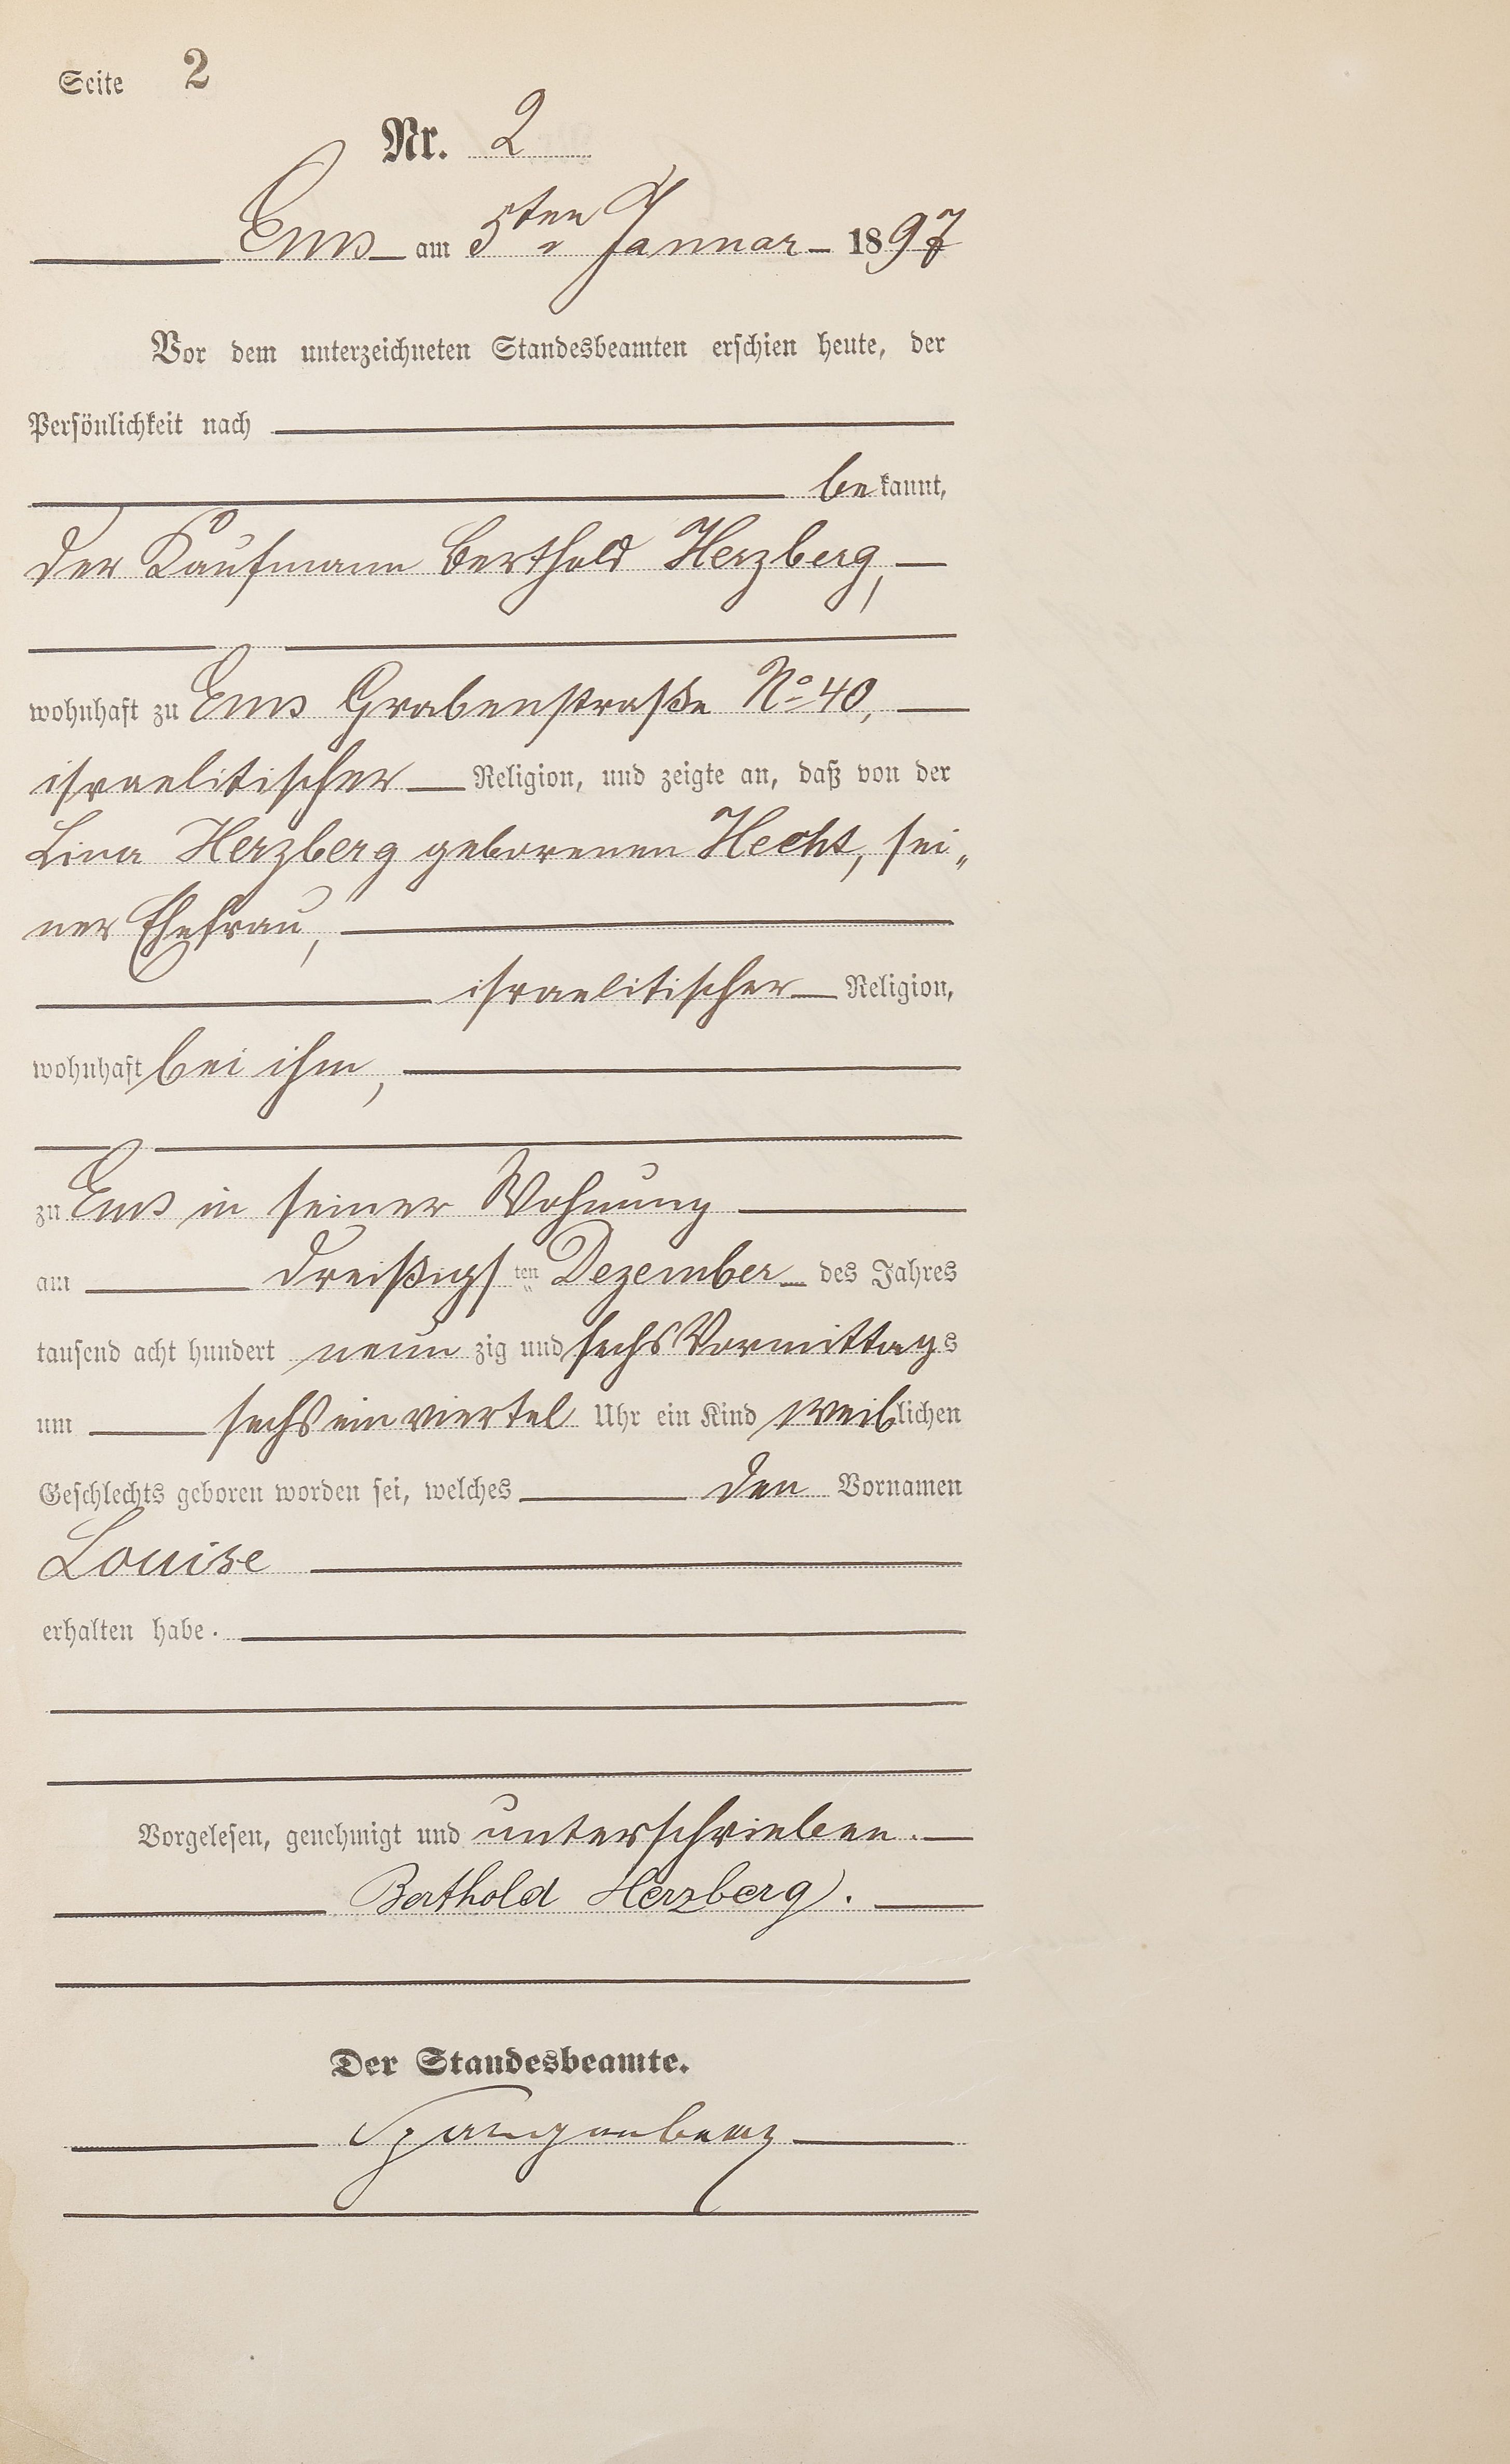 Seite 2
Nr. 2
Ems am 5ten Januar 1897
Vor dem unterzeichneten Standesbeamten erschien heute, der
Persönlichkeit nach
bekannt,
der Kaufmann Berthold Herzberg,
wohnhaft zu Ems Grabenstraße No 40,
israelitischer Religion, und zeigte an, daß von der
Lina Herzberg geborenen Hecht, sei„
ner Ehefrau,
israelitischer Religion,
wohnhaft bei ihm,
zu Ems in seiner Wohnung
am dreißigsten Dezember des Jahres
tausend acht hundert neunzig und sechs Vormittags
um sechs ein viertel Uhr ein Kind weiblichen
Geschlechts geboren worden sei, welches den Vornamen
Louise
erhalten habe.
Vorgelesen, genehmigt und unterschrieben.
Berthold Herzberg.
Der Standesbeamte.
Spangenberg